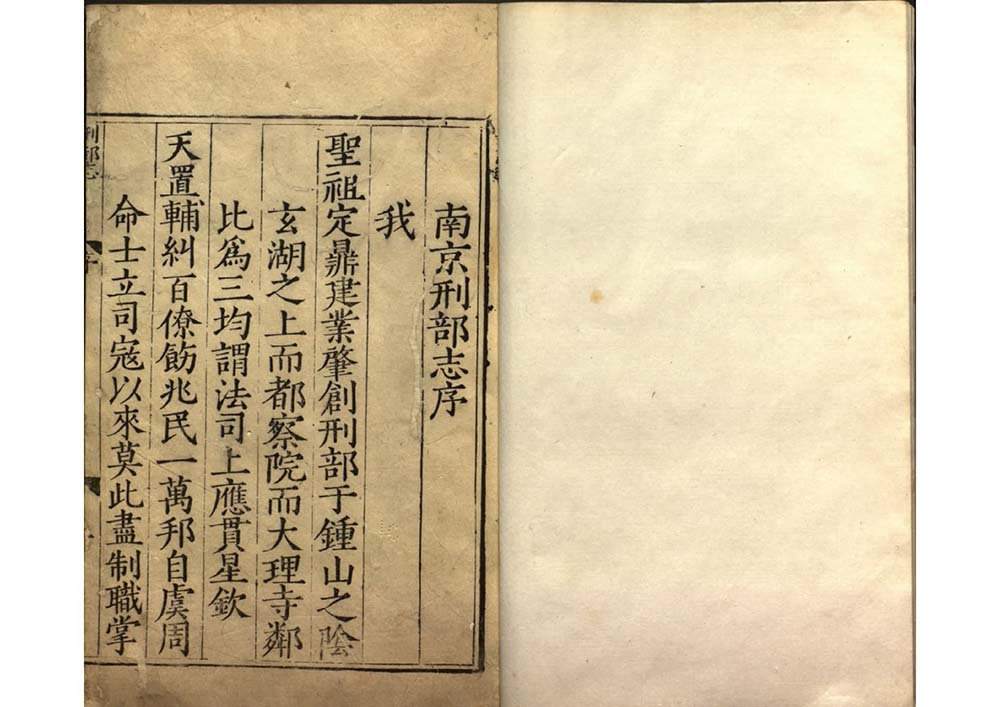 南京刑部志序
我
聖祖定鼎建業肇創刑部于鍾山之陰
玄湖之上而都察院而大理寺鄰
比爲三均謂法司上應貫星欽
天置輔糾百僚飭兆民一萬邦自虞周
命士立司寇以來莫此盡制職掌
刑部志